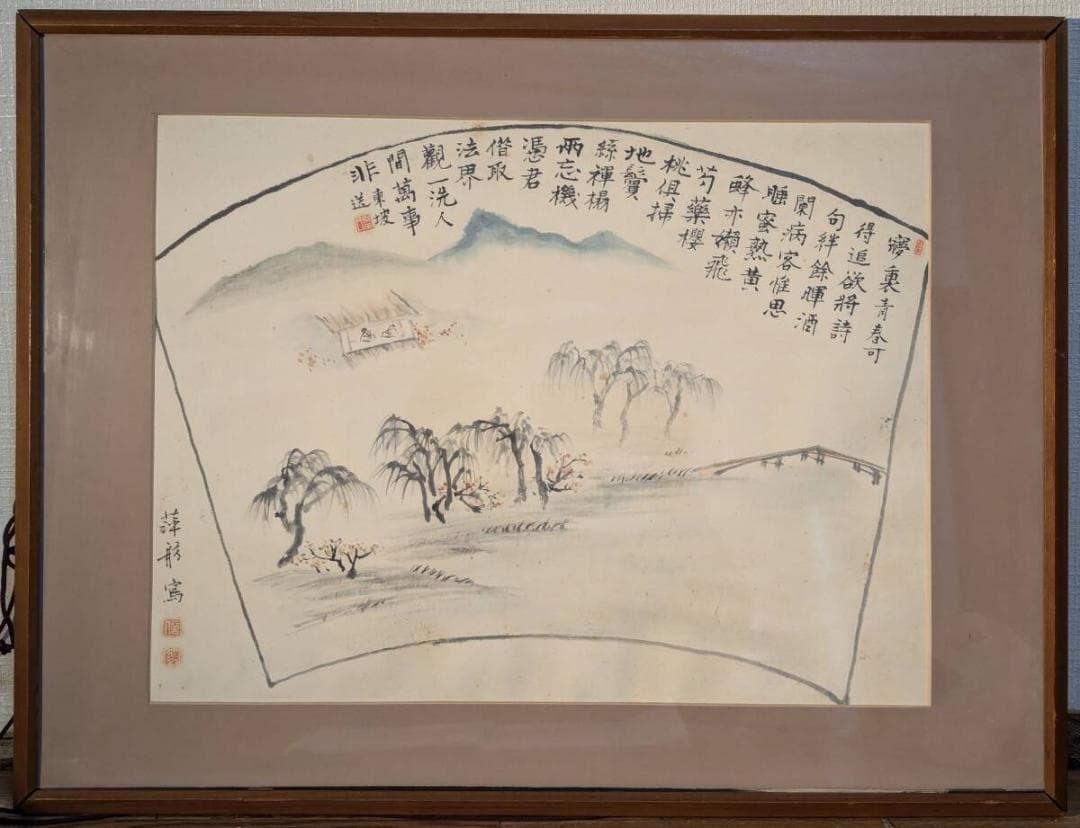 夢裏青春可
得追欲將詩
句絆餘暉酒
闌病客惟思
睡蜜熟黃
蜂亦懶飛
芍藥櫻
桃俱掃
地鬢
絲禪榻
兩忘機
憑君
借取
法界
觀一洗人
間萬事
非
東坡
送
萍舫寫